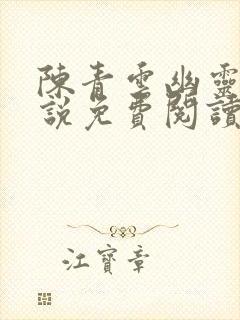 陳青雲幽靈
說免費閱讀
江寶章